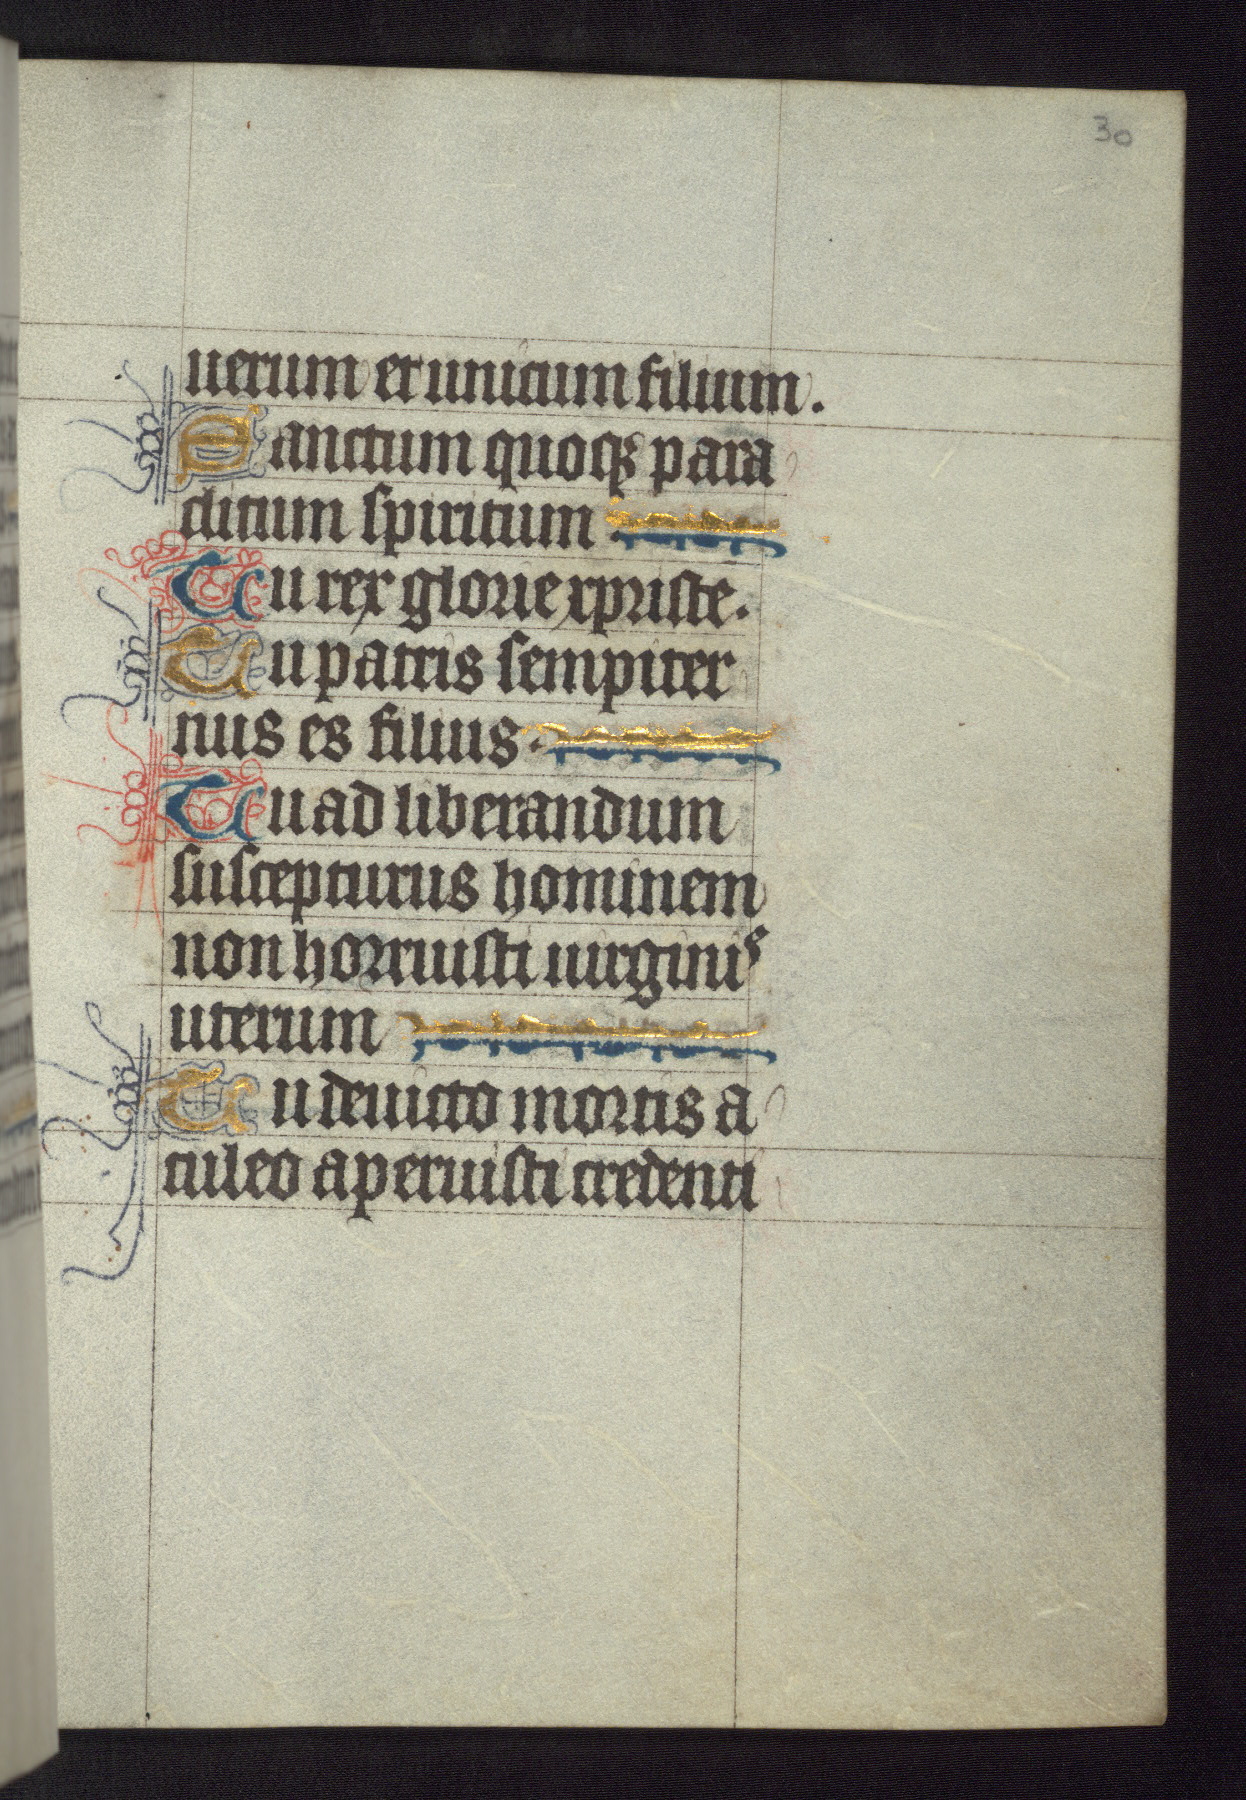 30
uerum et unicum filium.
Sanctum quoqꝫ para
clitum spiritum
Tu rex glorie xpriste.
Tu patris sempiter
nus es filius.
Tu ad liberandum
suscepturus hominem
non horruisti uirginis
uterum
Tu deuicto mortis a
culeo aperuisti credenti